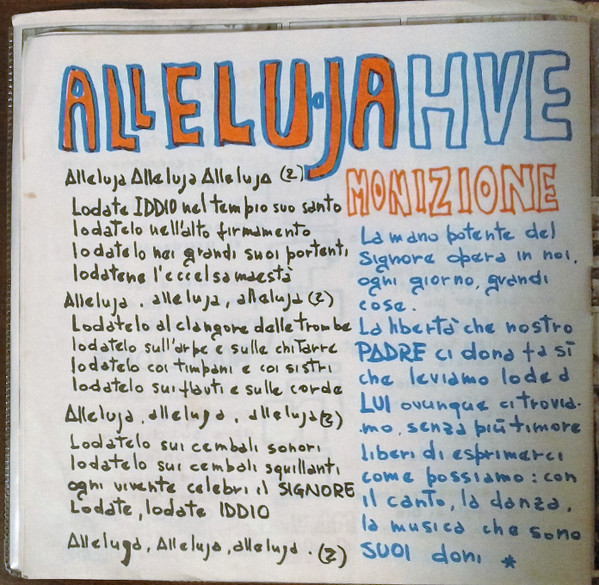 ALLELUJAHVE
Alleluja Alleluja Alleluja (2)
Lodate IDDIO nel tempio suo santo
lodatelo nell'alto firmamento
lodatelo nei grandi suoi portenti
lodatene l'eccelsa maestà
Alleluja, alleluja, alleluja (2)
Lodatelo al clangore delle trombe
lodatelo sull'arpe e sulle chitarre
lodatelo coi timpani e coi sistri
lodatelo sui flauti e sulle corde
Alleluja, alleluja, alleluja (2)
Lodatelo sui cembali sonori
lodatelo sui cembali squillanti
ogni vivente celebri il SIGNORE
Lodate, lodate IDDIO
Alleluja, Alleluja, alleluja. (2)
MONIZIONE
La mano potente del
Signore opera in noi,
ogni giorno, grandi
cose.
La libertà che nostro
PADRE ci dona fa sì
che leviamo lode a
LUI ovunque ci trovia-
mo, senza più timore
liberi di esprimerci
come possiamo: con
il canto, la danza,
la musica che sono
SUOI doni *